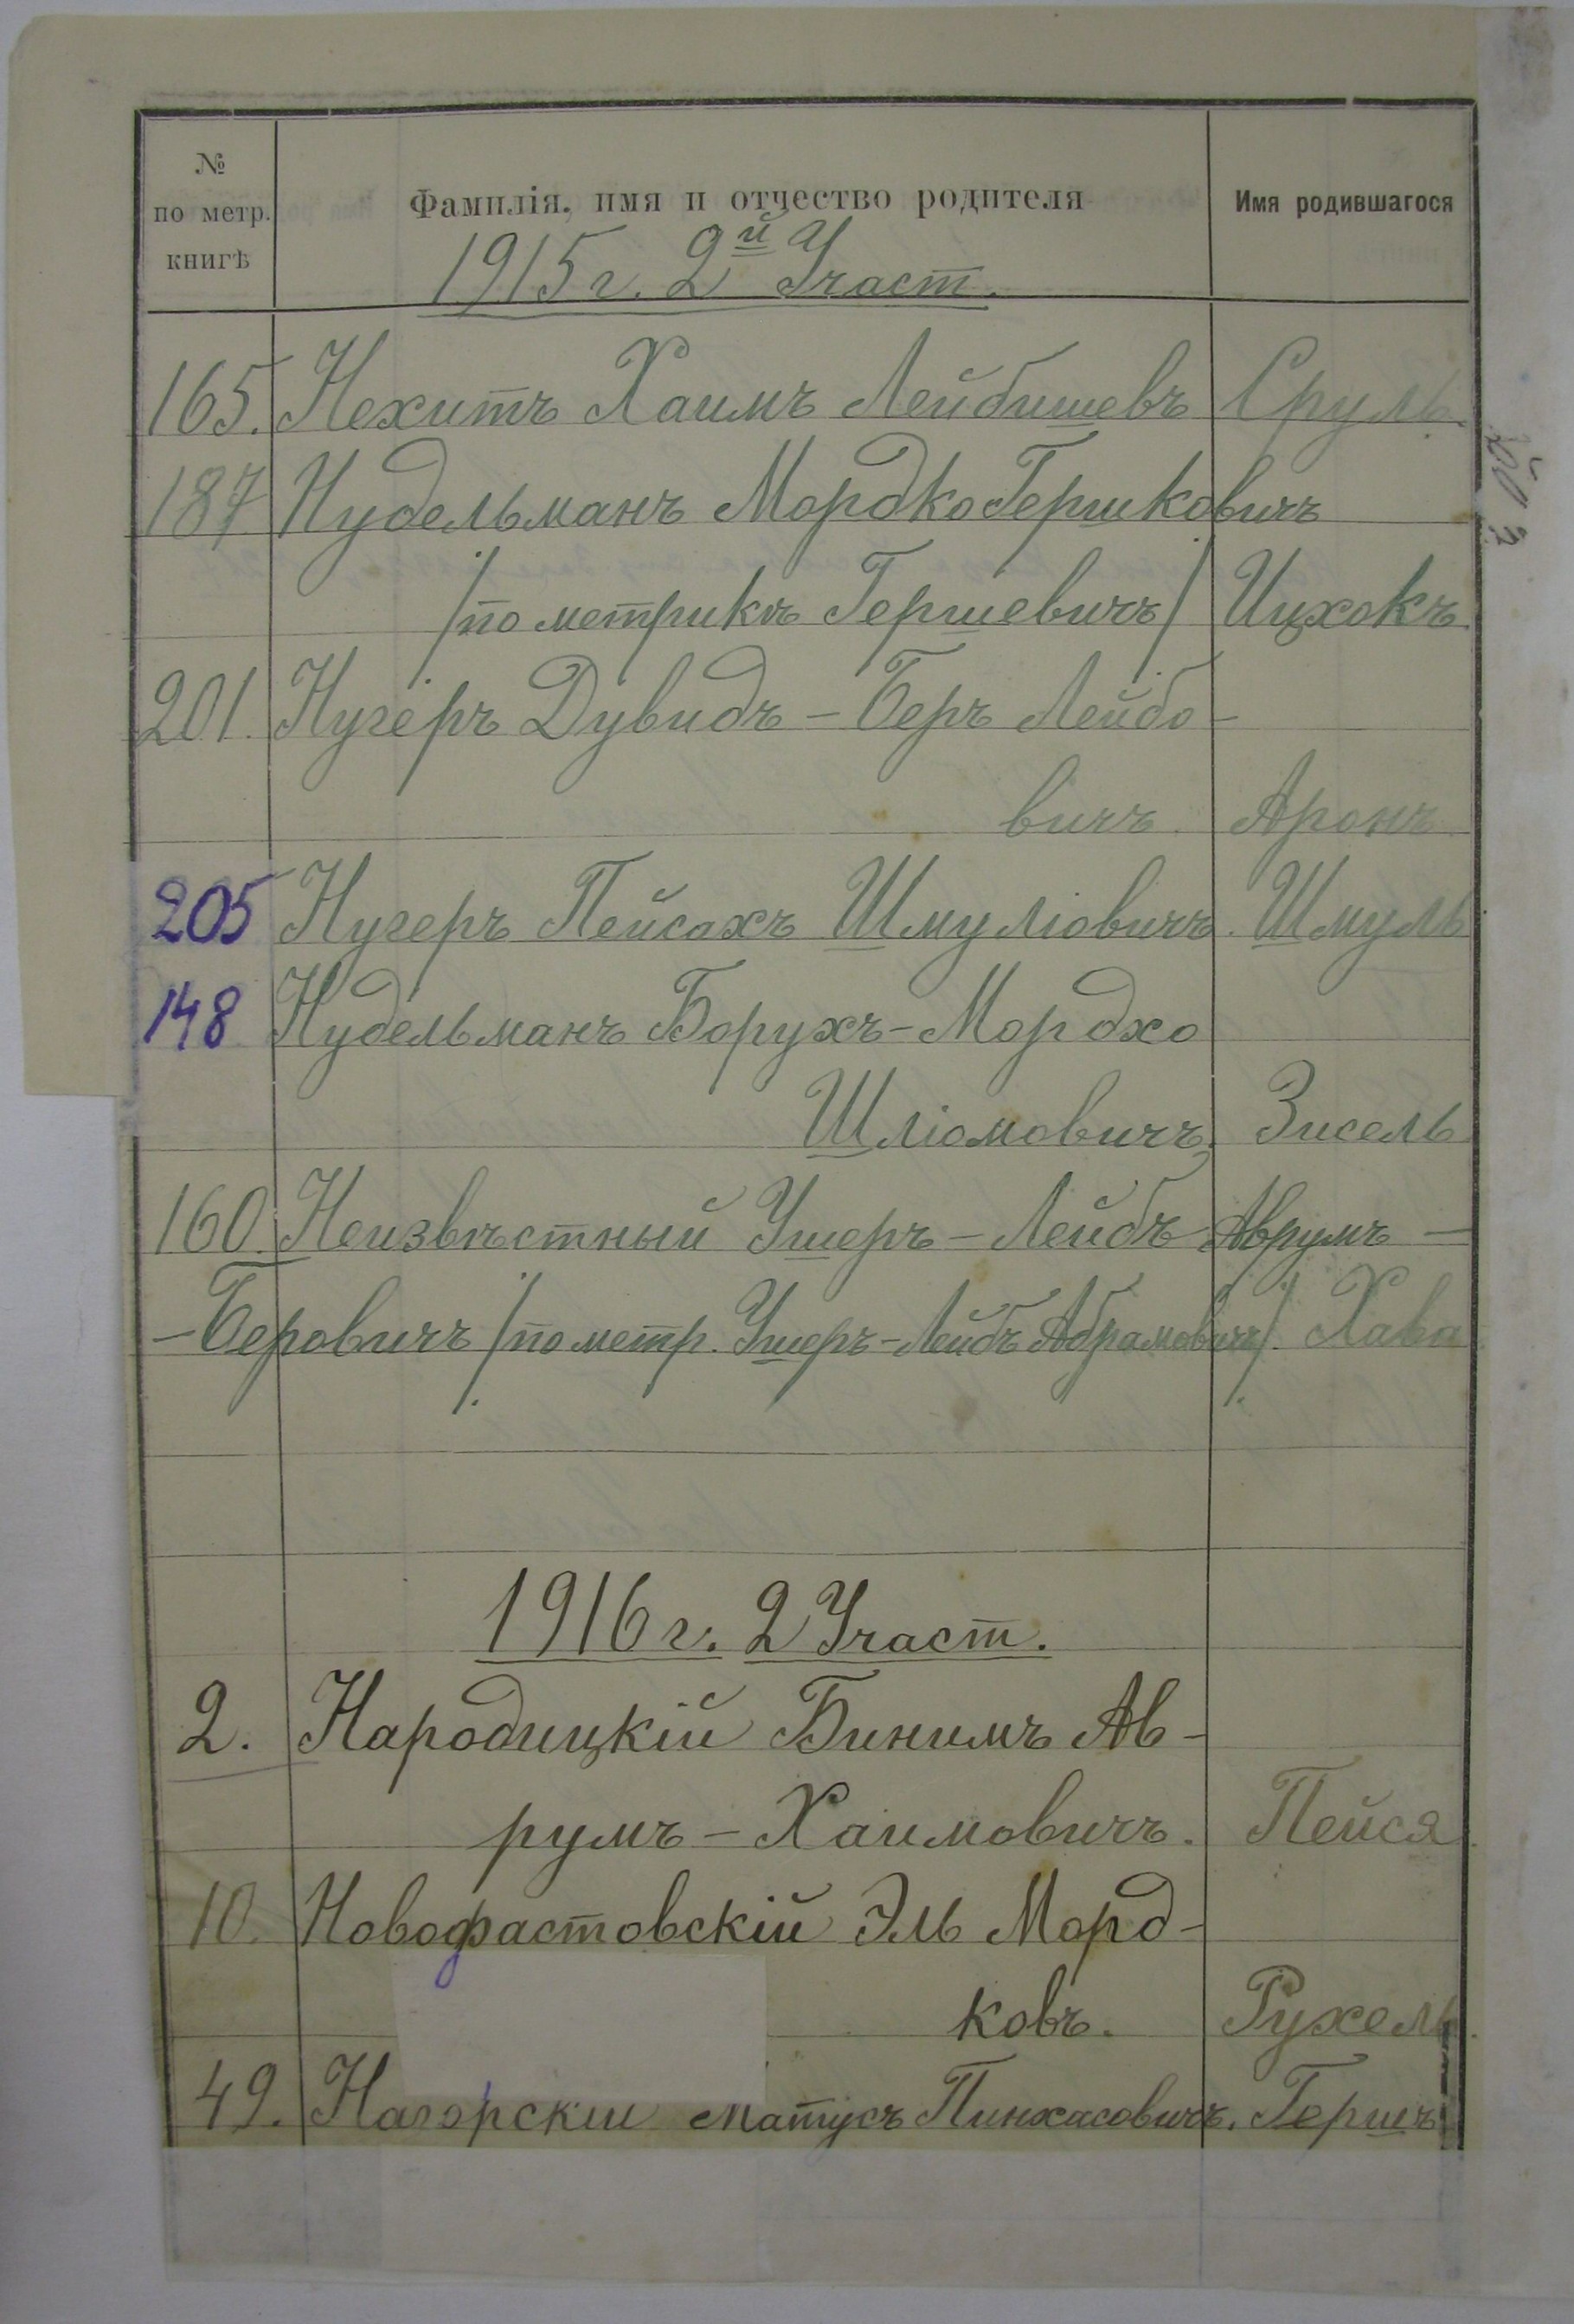 № по метр. книгѣ
Фамилія, имя и отчество родителя
Имя родившагося
1915 г. 2й Участ.
165. Нехитъ Хаимъ Лейбишевъ Сруль.
187 Нудельманъ Мордко Гершковичъ
/по метрикѣ Гершевичъ/ Ицхокъ.
201. Нугеръ Дувидъ - Беръ Лейбо-
вичъ. Аронъ
205 Нугеръ Пейсахъ Шмуліовичъ. Шмуль
148 Нудельманъ Борухъ-Мордхо
Шліомовичъ. Зисель
160. Неизвѣстный Ушеръ - Лейбъ Аврумъ -
- Беровичъ /по метр. Ушеръ-Лейбъ Абрамовичъ/. Хава
1916 г. 2 Участ.
2. Народицкій Бинимъ Ав-
румъ - Хаимовичъ. Пейся.
10. Новофастовскій Эль Морд-
ковъ. Рухель.
49. Нагорскій Матусъ Пинхасовичъ. Гершъ